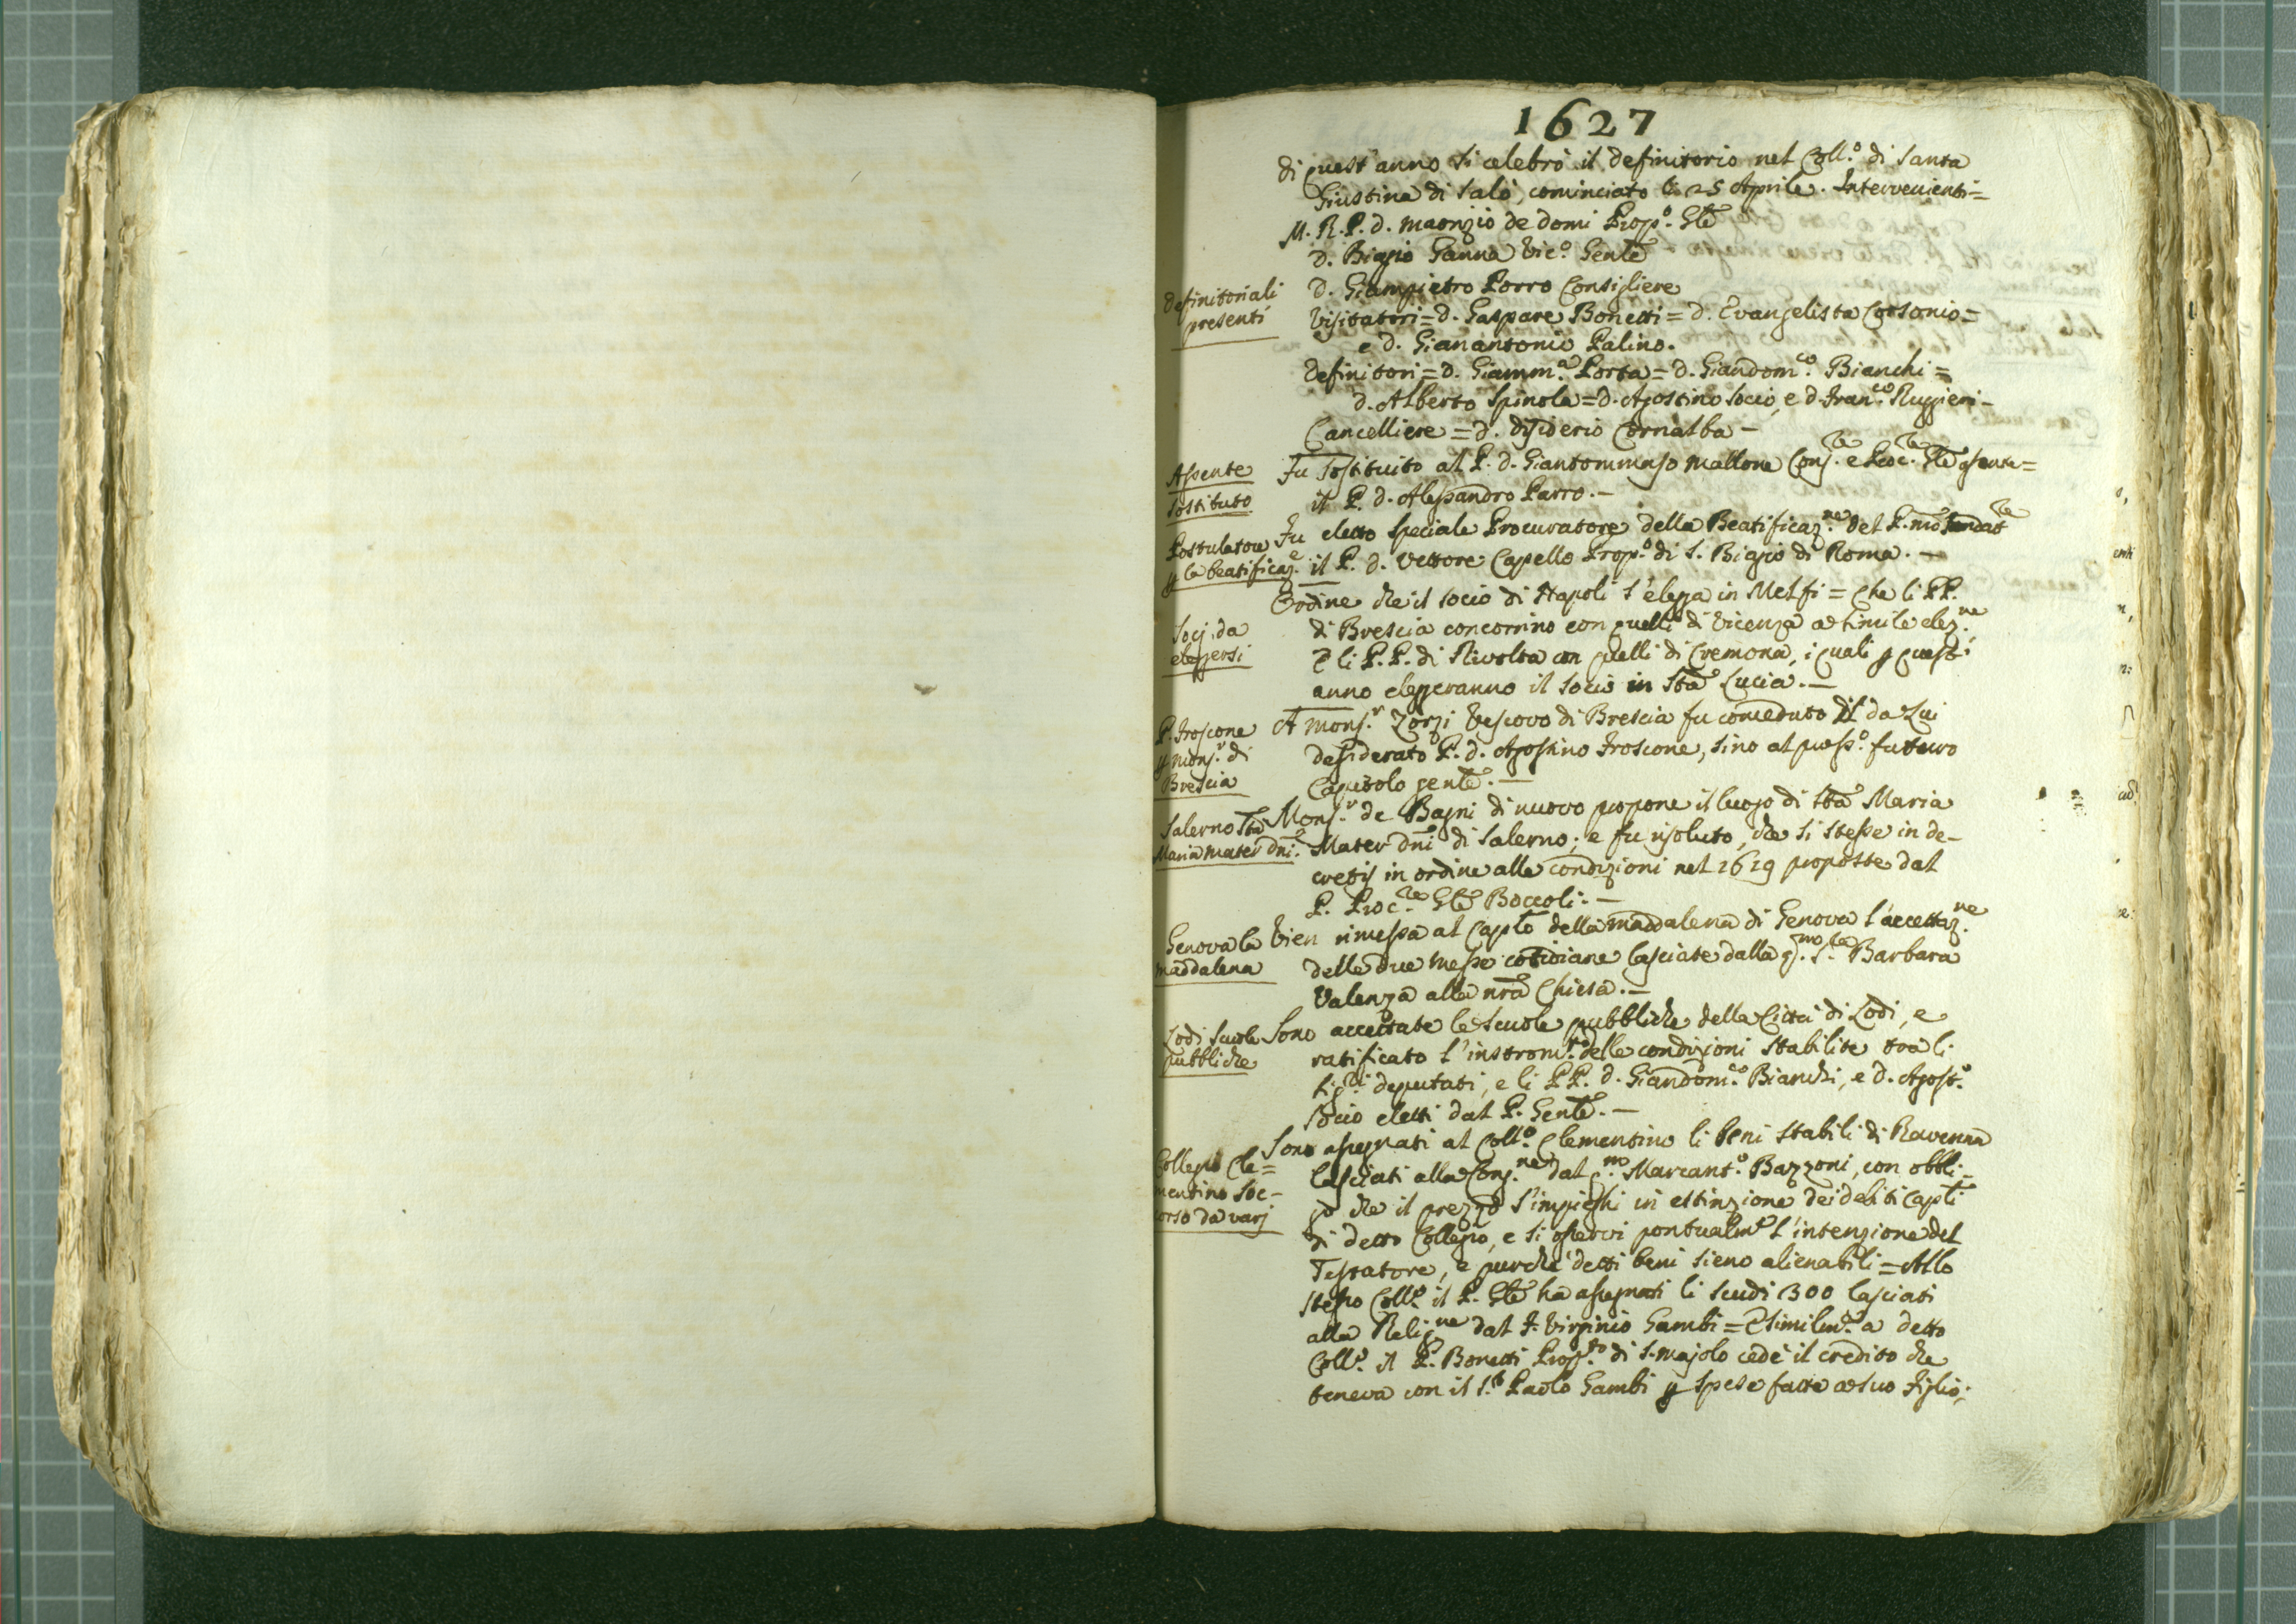 1627
di quest'anno si celebrò il definitorio nel Coll.º di Santa
Giustina di Salò, cominciato li 25 Aprile. Intervenienti=
M. R. P. d. Maurizio de Domi Prop.º Gle
d. Biagio Ganna Vic.º Genle
definitoriali
presenti
d. Giampietro Porro Consigliere
Visitatori= d. Gaspare Bonetti= d. Evangelista Corsonio=
e d. Gianantonio Palino.
definitori= d. Giamm.ª Porta= d. Giandom.co Bianchi=
d. Alberto Spinola= d. Agostino Socio, e d. Fran.co Ruggieri-
Cancelliere= d. disiderio Cornalba-
Assente
sostituto
Fu sostituito al P. d. Giantommaso Mallone Cons.re e Proc.re Gle assente=
il P. d. Alessandro Parro.-
Postulatore
p la beatificaz.e
Fu eletto speciale Procuratore della Beatificaz.ne del P. nro fondat.re
il P. d. Vettore Capello Prop.º di S. Biagio di Roma.-
Socj da
eleggersi
Ordine che il socio di Napoli s'elegga in Melfi= Che li PP.
di Brescia concorrino con quelli di Vicenza a simile elez.ne,
E li P.P. di Rivolta con quelli di Cremona, i quali p quest'
anno eleggeranno il Socio in Sta Lucia.-
P. Froscone
p mons.r di
Brescia
A mons.r Zorzi Vescovo di Brescia fu conceduto il da Lui
desiderato P. d. Agostino Froscone, sino al pross.º futuro
Capitolo genle.-
Salerno Sta
Maria mater dni.
Mons.r de Bagni di nuovo propone il luogo di Sta Maria
Mater dni di Salerno; e fu risoluto, che si stesse in de-
cretis in ordine alle condizioni nel 1619 proposte dal
P. Proc.re Gle Boccoli.-
Genova la
maddalena
Vien rimessa al Caplo della maddalena di Genova l'accettaz.ne
delle due messe cotidiane lasciate dalla q.m S.ra Barbara
Valenza alla nra Chiesa.-
Lodi scuole
pubbliche
Sono accettate le scuole pubbliche della Città di Lodi, e
ratificato l'instrom.to delle condizioni stabilite tra li
Sig.ri deputati, e li PP. d. Giandom.co Bianchi, e d. Agost.º
Socio eletti dal P. Genle.-
Collegio Cle=
mentino soc-
orso da varj
Sono assegnati al Coll.º Clementino li beni stabili di Ravenna
lasciati alla Cong.ne dal q.m Marcant.º Bazzoni, con obbli-
go che il prezzo s'impieghi in estinzione dei debiti Capli
di detto Collegio, e si osservi pontualm.e l'intenzione del
Testatore, e purchè detti beni sieno alienabili= Allo
stesso Coll.º il P. Gle ha assegnati li scudi 300 lasciati
alla Relig.ne dal F. Virginio Gambi= E similm.e a detto
Coll.º il P. Bonetti Prop.to di S. Majolo cedè il credito che
teneva con il S.r Paolo Gambi p spese fatte a suo figlio;